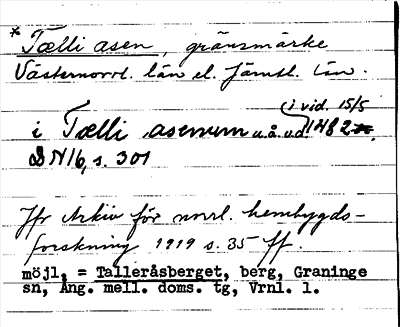 * Tælli asen, gränsmärke
Västernorrl. län el. Jämtl. län.
(i vid. 15/5
i Tælli asenum u.å. 1482.
DN 16, s. 301
Jfr Arkiv för norrl. hembygds-
forskning 1919 s. 35 ff.
möjl. = Talleråsberget, berg, Graninge
sn, Ång. mell. doms. tg, Vrnl. l.